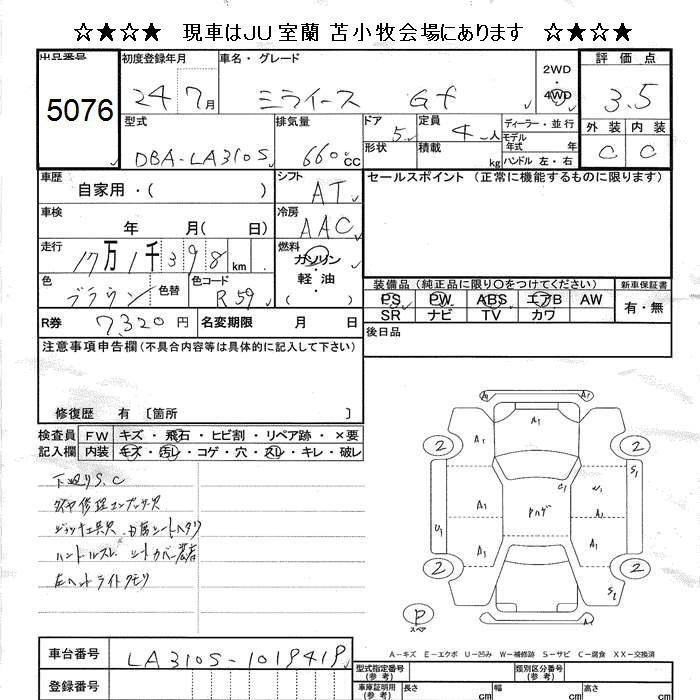 ☆★☆★ 現車はJU室蘭 苫小牧会場にあります ☆★☆★
出品番号 初度登録年月 車名・グレード 2WD 4WD 評価点
5076 24 7月 ミライース Gf 3.5
型式 排気量 ドア 定員 ディーラー・並行 外装 内装
DBA-LA310S 660cc 5 4人 モデル年式 年 C C
形状 積載 kg ハンドル 左・右
車歴 シフト セールスポイント(正常に機能するものに限ります)
自家用・( ) AT
車検 年 月( 日) 冷房 AAC
走行 17万1千398km 燃料 ガソリン・軽油 ( )
色 ブラウン 色替 色コード R59
装備品(純正品に限り〇をつけてください) 新車保証書
PS PW ABS エアB AW 有・無
SR ナビ TV カワ
R券 7320円 名変期限 月 日 後日品
注意事項申告欄(不具合内容等は具体的に記入して下さい)
修復歴 有 〔箇所 〕
検査員 FW キズ・飛石・ヒビ割・リペア跡・×要
記入欄 内装 キズ・汚レ・コゲ・穴・スレ・キレ・破レ
下廻りS.C
タイヤ修理コンプレッサ欠
ジャッキ工具欠 内張シートヘタリ
ハンドルスレ シートカバー装着
左ヘッドライトクモリ
A1
A1
A1
2 2
S1
A1 A1
U1
A1 A1
2 2
S2
P
スペア
A-キズ E-エクボ U-凹み W-補修跡 S-サビ C-腐食 XX-交換済
車台番号 LA310S-1019419
登録番号
型式指定番号(参考) 類別区分番号(参考)
車庫証明用(参考) 長さ cm 幅 cm 高さ cm